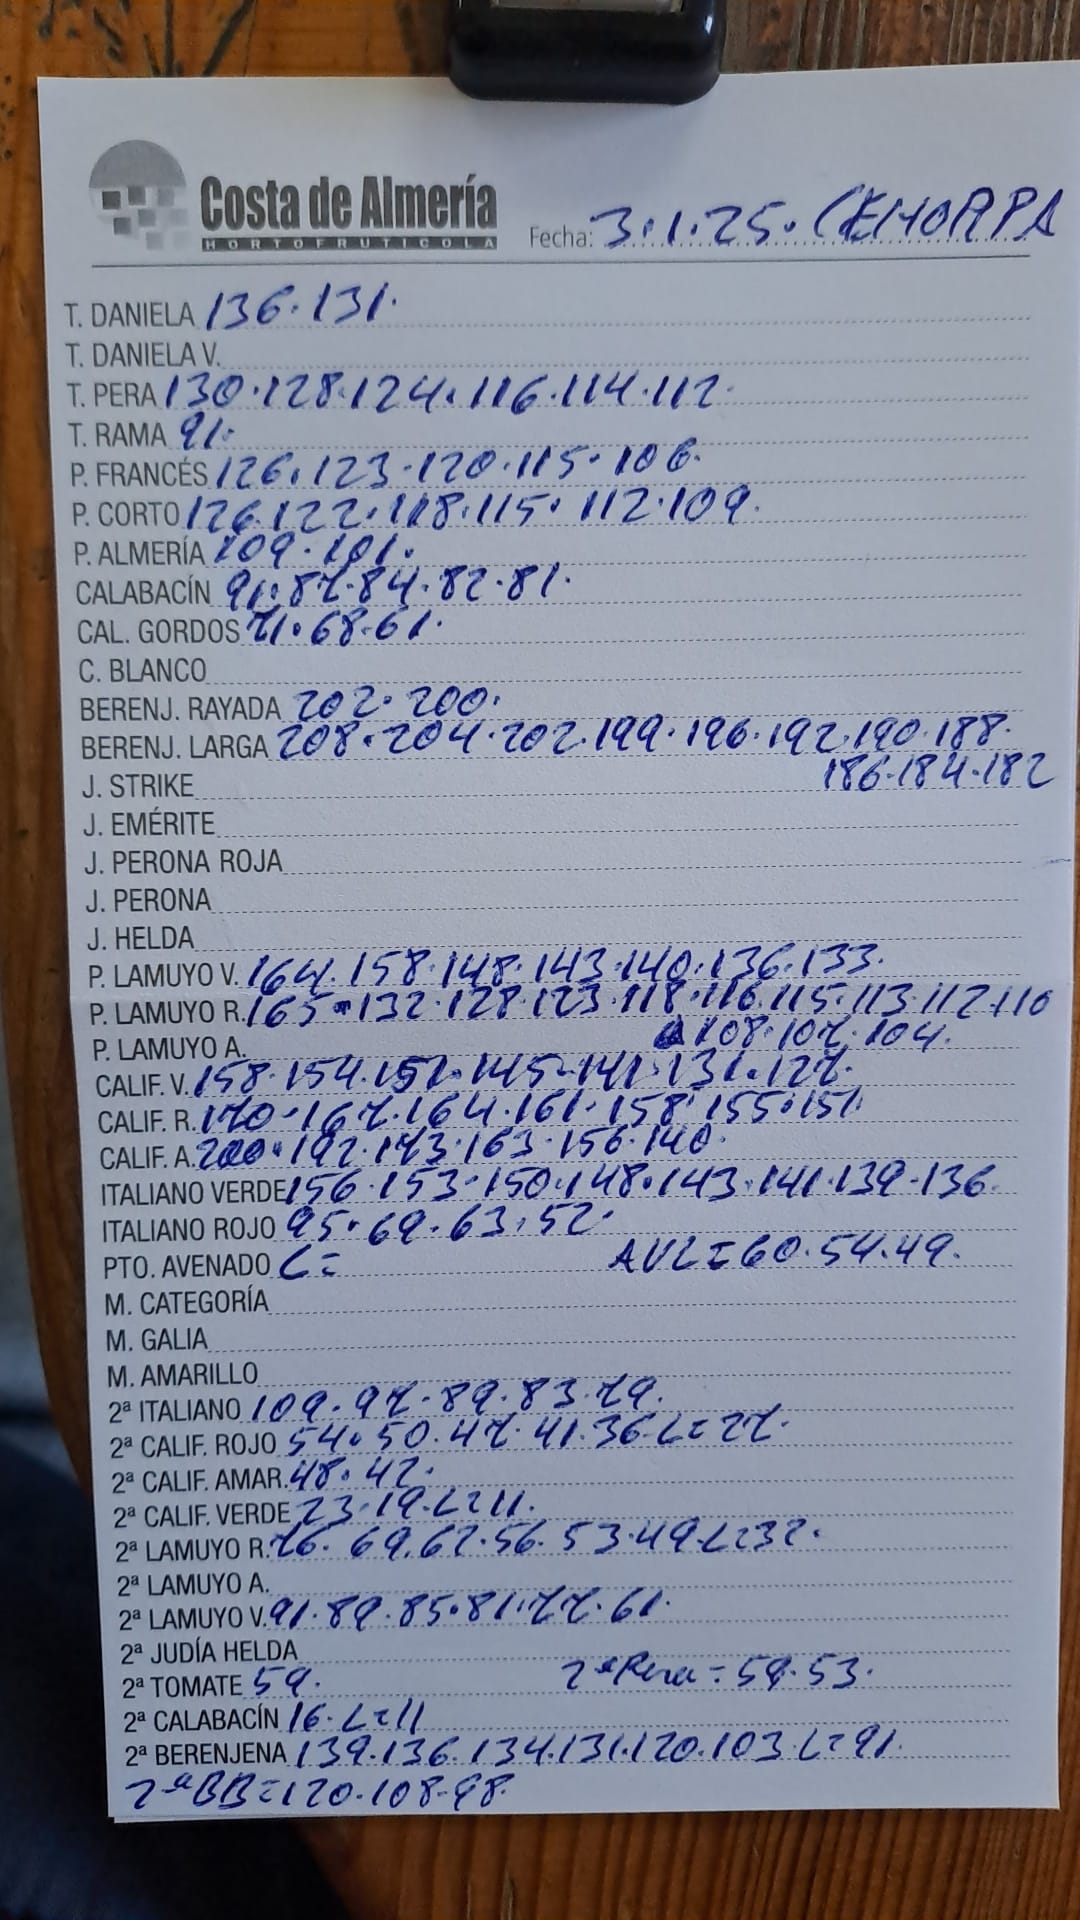 Costa de Almería
HORTOFRUTICOLA
Fecha: 3.1.25. CEHORPA
T. DANIELA 136.131.
T. DANIELA V.
T. PERA 130.128.124.116.114.112.
T. RAMA 91.
P. FRANCÉS 126.123.120.115.106.
P. CORTO 126.122.118.115.112.109.
P. ALMERÍA 109.101.
CALABACÍN 91.87.84.82.81.
CAL. GORDOS 71.68.61.
C. BLANCO
BERENJ. RAYADA 202.200.
BERENJ. LARGA 208.204.202.199.196.192.190.188.
186.184.182
J. STRIKE
J. EMÉRITE
J. PERONA ROJA
J. PERONA
J. HELDA
P. LAMUYO V. 164.158.148.143.140.136.133.
P. LAMUYO R. 165.132.128.123.118.116.115.113.112.110
108.107.104.
P. LAMUYO A.
CALIF. V. 158.154.151.145.141.131.127.
CALIF. R. 170.167.164.161.158.155.151.
CALIF. A. 200.192.173.163.156.140.
ITALIANO VERDE 156.153.150.148.143.141.139.136.
ITALIANO ROJO 95.69.63.52.
PTO. AVENADO L= AVL=60.54.49.
M. CATEGORÍA
M. GALIA
M. AMARILLO
2ª ITALIANO 109.97.89.83.79.
2ª CALIF. ROJO 54.50.47.41.36.L=27.
2ª CALIF. AMAR. 48.42.
2ª CALIF. VERDE 23.19.L=11.
2ª LAMUYO R. 76.69.62.56.53.49.L=32.
2ª LAMUYO A.
2ª LAMUYO V. 91.89.85.81.77.61.
2ª JUDÍA HELDA
2ª TOMATE 59. 2ª Pera = 59.53.
2ª CALABACÍN 16.L=11
2ª BERENJENA 139.136.134.131.120.103.L=91.
2ª BB=120.108.98.